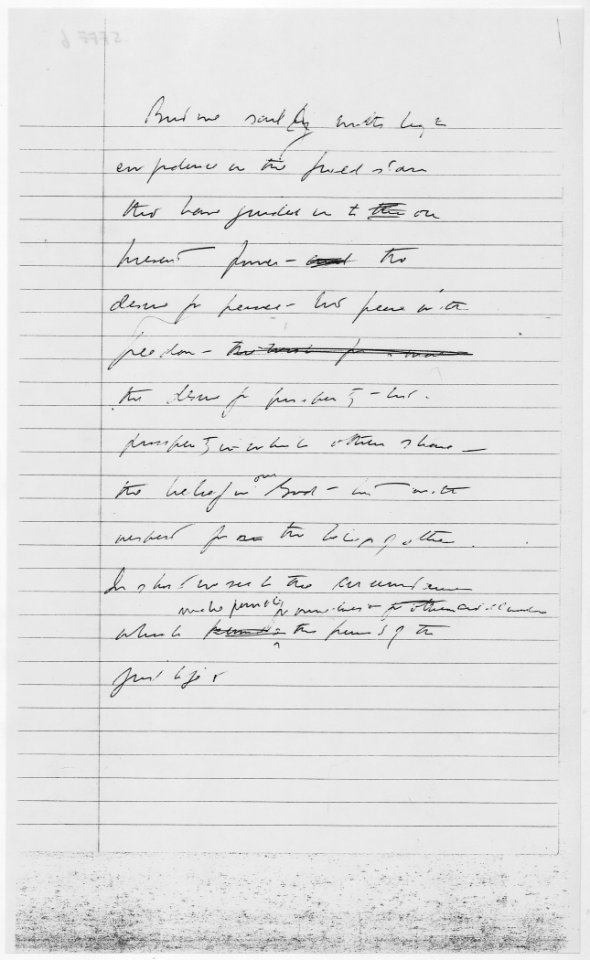 But we sail by with high
confidence in the fixed stars
that have guided us to the our
present power - and the
desire for peace - but peace with
freedom -
the desire for prosperity - but
prosperity in which others share -
the belief in our God - but with
respect for the beliefs of others.
In short we seek the circumstances
make possible for ourselves & for others
which the pursuit of the
good life